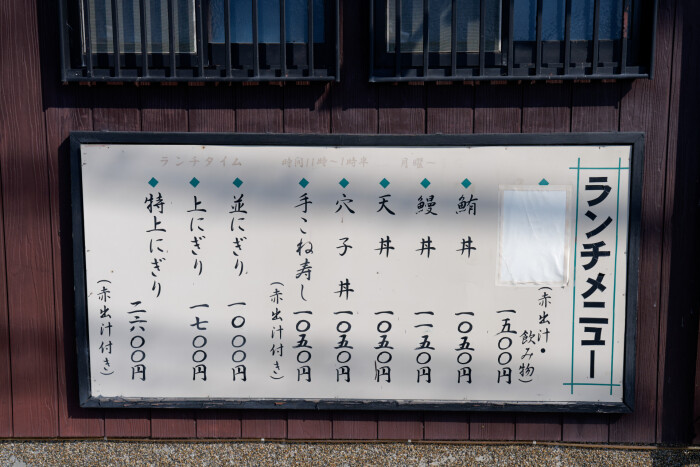 ランチタイム 時間11時~1時半 月曜~
ランチメニュー
◆
(赤出汁・飲み物)
一五〇〇円
◆鮪丼 一〇五〇円
◆鰻丼 一一五〇円
◆天丼 一〇五〇円
◆穴子丼 一〇五〇円
◆手こね寿し 一〇五〇円
(赤出汁付き)
◆並にぎり 一〇〇〇円
◆上にぎり 一七〇〇円
◆特上にぎり 二六〇〇円
(赤出汁付き)